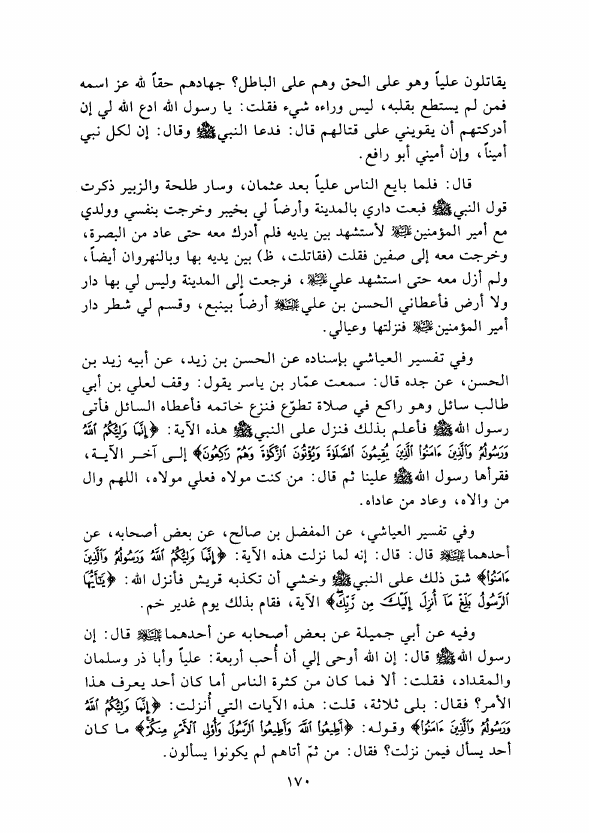 يقاتلون علياً وهو على الحق وهم على الباطل؟ جهادهم حقاً لله عز اسمه
فمن لم يستطع بقلبه، ليس وراءه شيء فقلت: يا رسول الله ادع الله لي إن
أدركتهم أن يقويني على قتالهم قال: فدعا النبي ﷺ وقال: إن لكل نبي
أميناً، وإن أميني أبو رافع.
قال: فلما بايع الناس علياً بعد عثمان، وسار طلحة والزبير ذكرت
قول النبي ﷺ فبعت داري بالمدينة وأرضاً لي بخيبر وخرجت بنفسي وولدي
مع أمير المؤمنين لأستشهد بين يديه فلم أدرك معه حتى عاد من البصرة،
وخرجت معه إلى صفين فقلت (فقاتلت، ظ) بين يديه بها وبالنهروان أيضاً،
ولم أزل معه حتى استشهد علي، فرجعت إلى المدينة وليس لي بها دار
ولا أرض فأعطاني الحسن بن علي أرضاً بينبع، وقسم لي شطر دار
أمير المؤمنين فنزلتها وعيالي.
وفي تفسير العياشي بإسناده عن الحسن بن زيد، عن أبيه زيد بن
الحسن، عن جده قال: سمعت عمّار بن ياسر يقول: وقف لعلي بن أبي
طالب سائل وهو راكع في صلاة تطوّع فنزع خاتمه فأعطاه السائل فأتى
رسول الله ﷺ فأعلم بذلك فنزل على النبي ﷺ هذه الآية: ﴿إِنَّمَا وَلِيُّكُمُ ٱللَّهُ
وَرَسُولُهُ وَٱلَّذِينَ ءَامَنُوا۟ ٱلَّذِينَ يُقِيمُونَ ٱلصَّلَوٰةَ وَيُؤْتُونَ ٱلزَّكَوٰةَ وَهُمْ رَٰكِعُونَ﴾ إلى آخر الآية،
فقرأها رسول الله ﷺ علينا ثم قال: من كنت مولاه فعلي مولاه، اللهم وال
من والاه، وعاد من عاداه.
وفي تفسير العياشي، عن المفضل بن صالح، عن بعض أصحابه، عن
أحدهما قال: قال: إنه لما نزلت هذه الآية: ﴿إِنَّمَا وَلِيُّكُمُ ٱللَّهُ وَرَسُولُهُ وَٱلَّذِينَ
ءَامَنُوا۟﴾ شق ذلك على النبي ﷺ وخشي أن تكذبه قريش فأنزل الله: ﴿يَٰٓأَيُّهَا
ٱلرَّسُولُ بَلِّغْ مَآ أُنزِلَ إِلَيْكَ مِن رَّبِّكَ﴾ الآية، فقام بذلك يوم غدير خم.
وفيه عن أبي جميلة عن بعض أصحابه عن أحدهما قال: إن
رسول الله ﷺ قال: إن الله أوحى إلي أن أُحب أربعة: علياً وأبا ذر وسلمان
والمقداد، فقلت: ألا فما كان من كثرة الناس أما كان أحد يعرف هذا
الأمر؟ فقال: بلى ثلاثة، قلت: هذه الآيات التي أُنزلت: ﴿إِنَّمَا وَلِيُّكُمُ ٱللَّهُ
وَرَسُولُهُ وَٱلَّذِينَ ءَامَنُوا۟﴾ وقوله: ﴿أَطِيعُوا۟ ٱللَّهَ وَأَطِيعُوا۟ ٱلرَّسُولَ وَأُو۟لِى ٱلْأَمْرِ مِنكُمْ﴾ ما كان
أحد يسأل فيمن نزلت؟ فقال: من ثمّ أتاهم لم يكونوا يسألون.
١٧٠